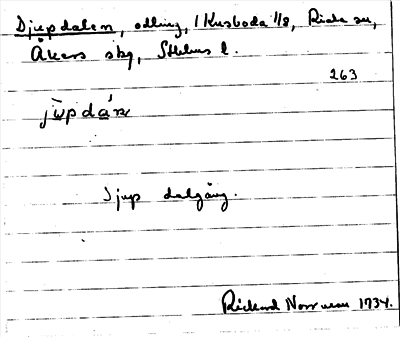 Djupdalen, odling, 1 Kusboda 1/8, Riala sn,
Åkers skg, Sthlms l.
263
jùpdán
Djup dalgång.
Rickard Norrman 1934.